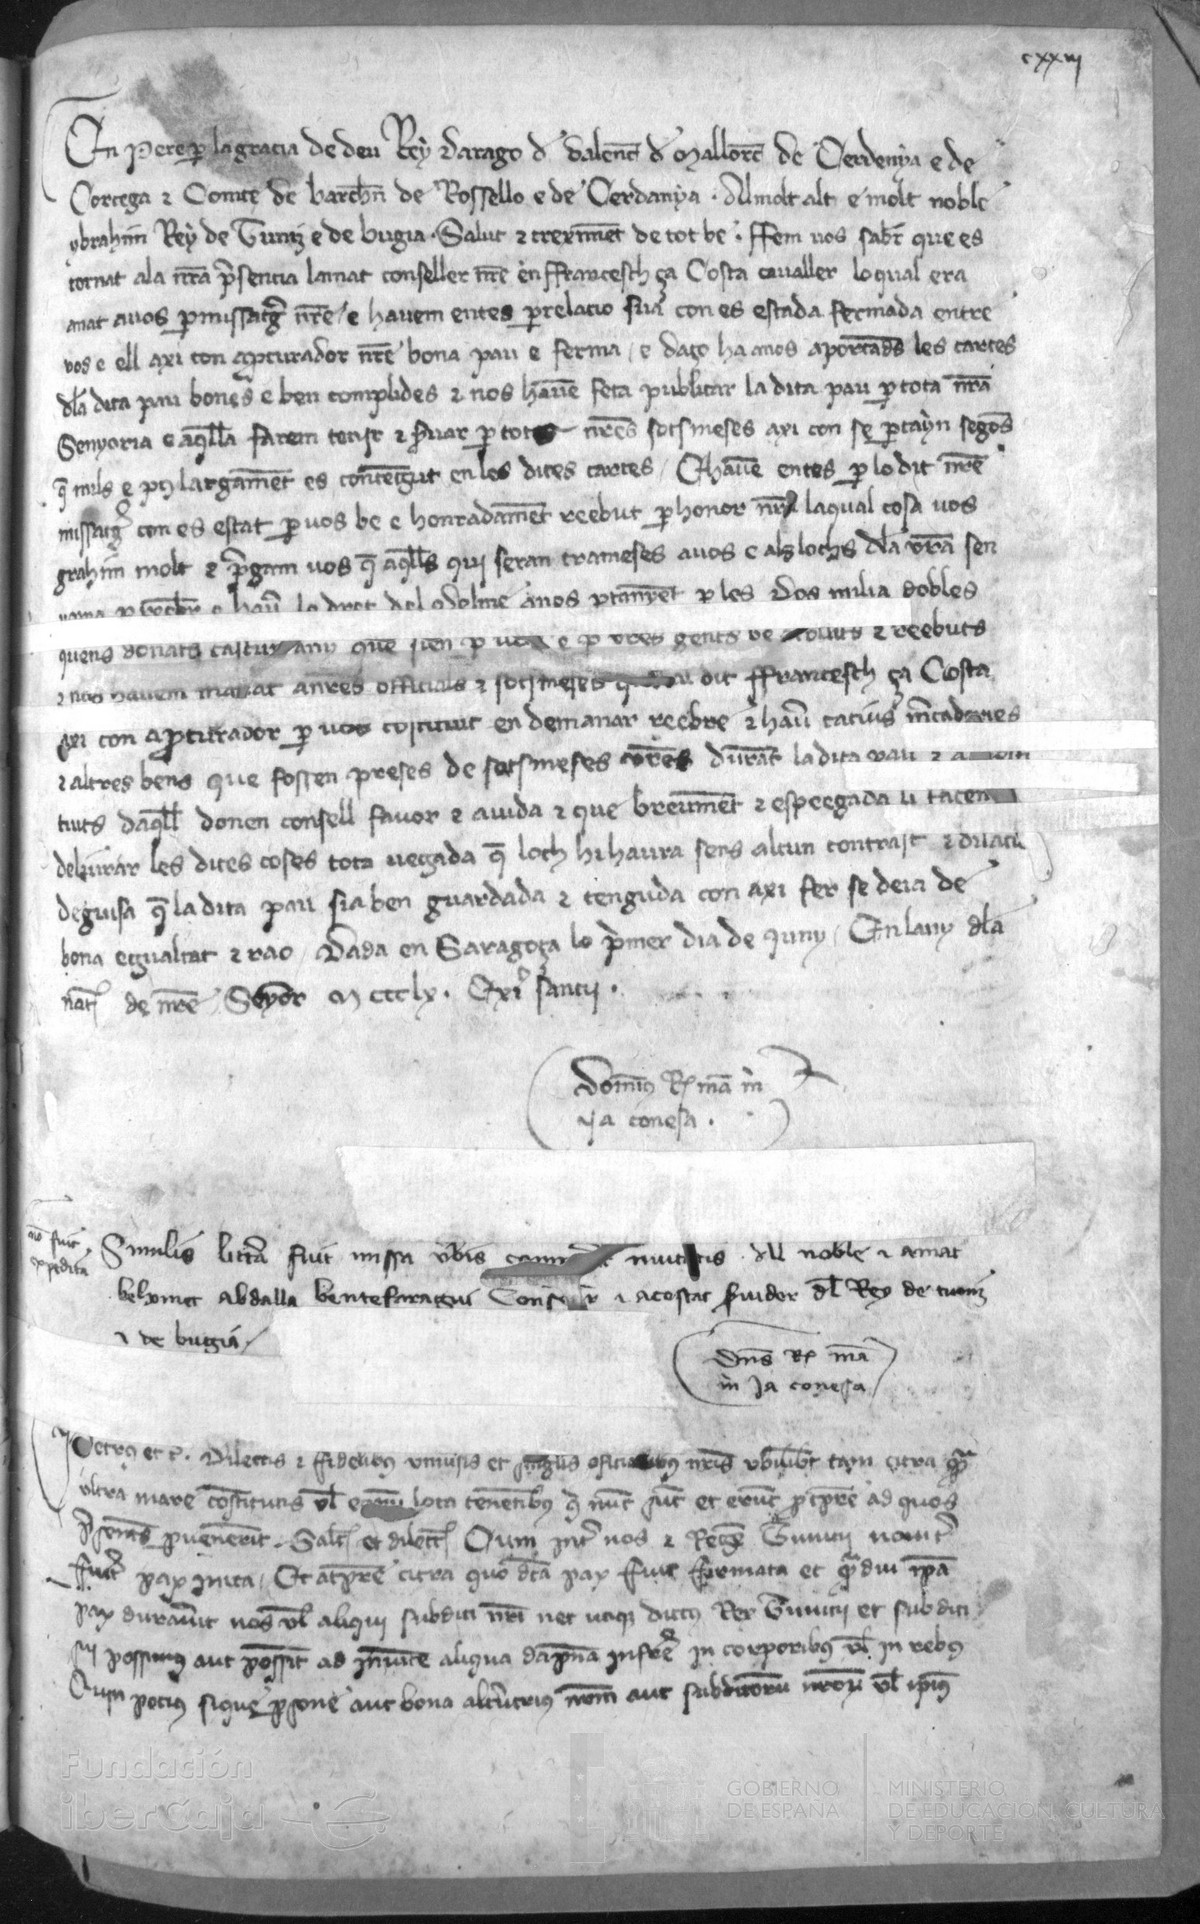 cxxvij
En Pere p la gracia de deu Rey Darago d Valenc d Mallorc de Cerdenya e de
Corcega & Comte de barchn de Rossello e de Cerdanya . Al molt alt e molt noble
ybrahim Rey de Tuniz e de bugia . Salut & creximet de tot be . Ffem vos saber que es
tornat a la nra psencia lamat conseller nre en ffrancesch ça Costa cavaller lo qual era
anat a vos p missatg nre / e havem entes p relacio sua con es estada fermada entre
vos e ell axi con a pcurador nre bona pau e ferma / e daço ha a nos aportades les cartes
dla dita pau bones e ben complides & nos havem feta publicar la dita pau p tota nra
Senyoria e aqlla farem tenir & svar p tots nres sotsmeses axi con se ptayn segons
q mils e pus largamet es contengut en les dites cartes / E havem entes p lo dit nre
missatg con es estat p vos be e honradamet reebut p honor nra la qual cosa vos
grahim molt & pgam vos q aqlls qui seran trameses a vos e als lochs dla vra sen
yoria p reebr e hav lo dret del a nos ptanyet p les Dos milia dobles
quens donats casCun any que sien p vos e p vres gents be & reebuts
& nos havem manat a nres officials & sotsmeses dit ffrancesch ça Costa
axi con a pcurador p vos costituit en demanar reebre & hav catius mcaderies
& altres bens que fossen preses de sotsmeses vres durat la dita pau &
tuits daqll donen consell favor & aiuda & que breumet & espeegada li facen
deliurar les dites coses tota vegada q loch hi haura sens altun contrast & dilacio
de guisa q la dita pau sia ben guardada & tenguda con axi fer se deia de
bona egualtat & rao / Dada en Saragoça lo pmer dia de Juny / En lany dla
nat de nre Senyor M CCC lx .

Domin Rex ma m
Ja conesa .

no fuit
expedita
Similis littra fuit missa vbis mutatis . Al noble & amat
abdalla bentefaragui Conseller & acostat dl Rey de tuniz
& de bugia .

Dns Rex ma
m Ja conesa

Petrus et c . Dilectis & fidelibus universis et singulis oficialibus nris ubiuibt tam citra q
ultra mare costitutis vl eorum loca tenetibus q nuc sut et erunt p tpre ad quos
psentes puenerit . Salt et dilect Cum int nos & Rege Tunicii novit
fuit pax inita / Et a tpre citra quo dca pax fuit firmata et q diu ipa
pax duravit nos vl aliqui subditi nri nec utiq dictus Rex Tunicii et subditi
sui possimus aut possit ad invice aliqua dapna infre in corporibus vl in rebus
Quin potius sique psone aut bona altutrius nrm aut subditoru nroru vl ipius

Fundación
iberCaja
GOBIERNO
DE ESPAÑA
MINISTERIO
DE EDUCACIÓN, CULTURA
Y DEPORTE